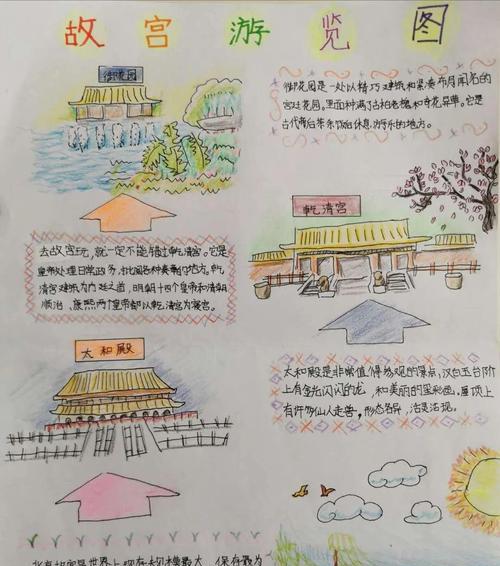 故宫游览图
御花园
御花园是一处以精巧建筑和紧凑布局闻名的
宫廷花园。里面种满了古柏老槐和奇花异草。它是
古代帝后茶余饭后休息、游乐的地方。
乾清宫
去故宫玩，就一定不能错过乾清宫。它是
皇帝处理日常政务，批阅各种奏章的地方。乾
清宫建筑为内廷之首，明朝十四个皇帝和清朝
顺治、康熙两个皇帝都以乾清宫为寝宫。
太和殿
太和殿是非常值得参观的景点，汉白玉台阶
上有金光闪闪的龙，和美丽的星彩画。屋顶上
有许多仙人走兽，形态各异，活灵活现。
北京故宫是世界上现存规模最大、保存最为